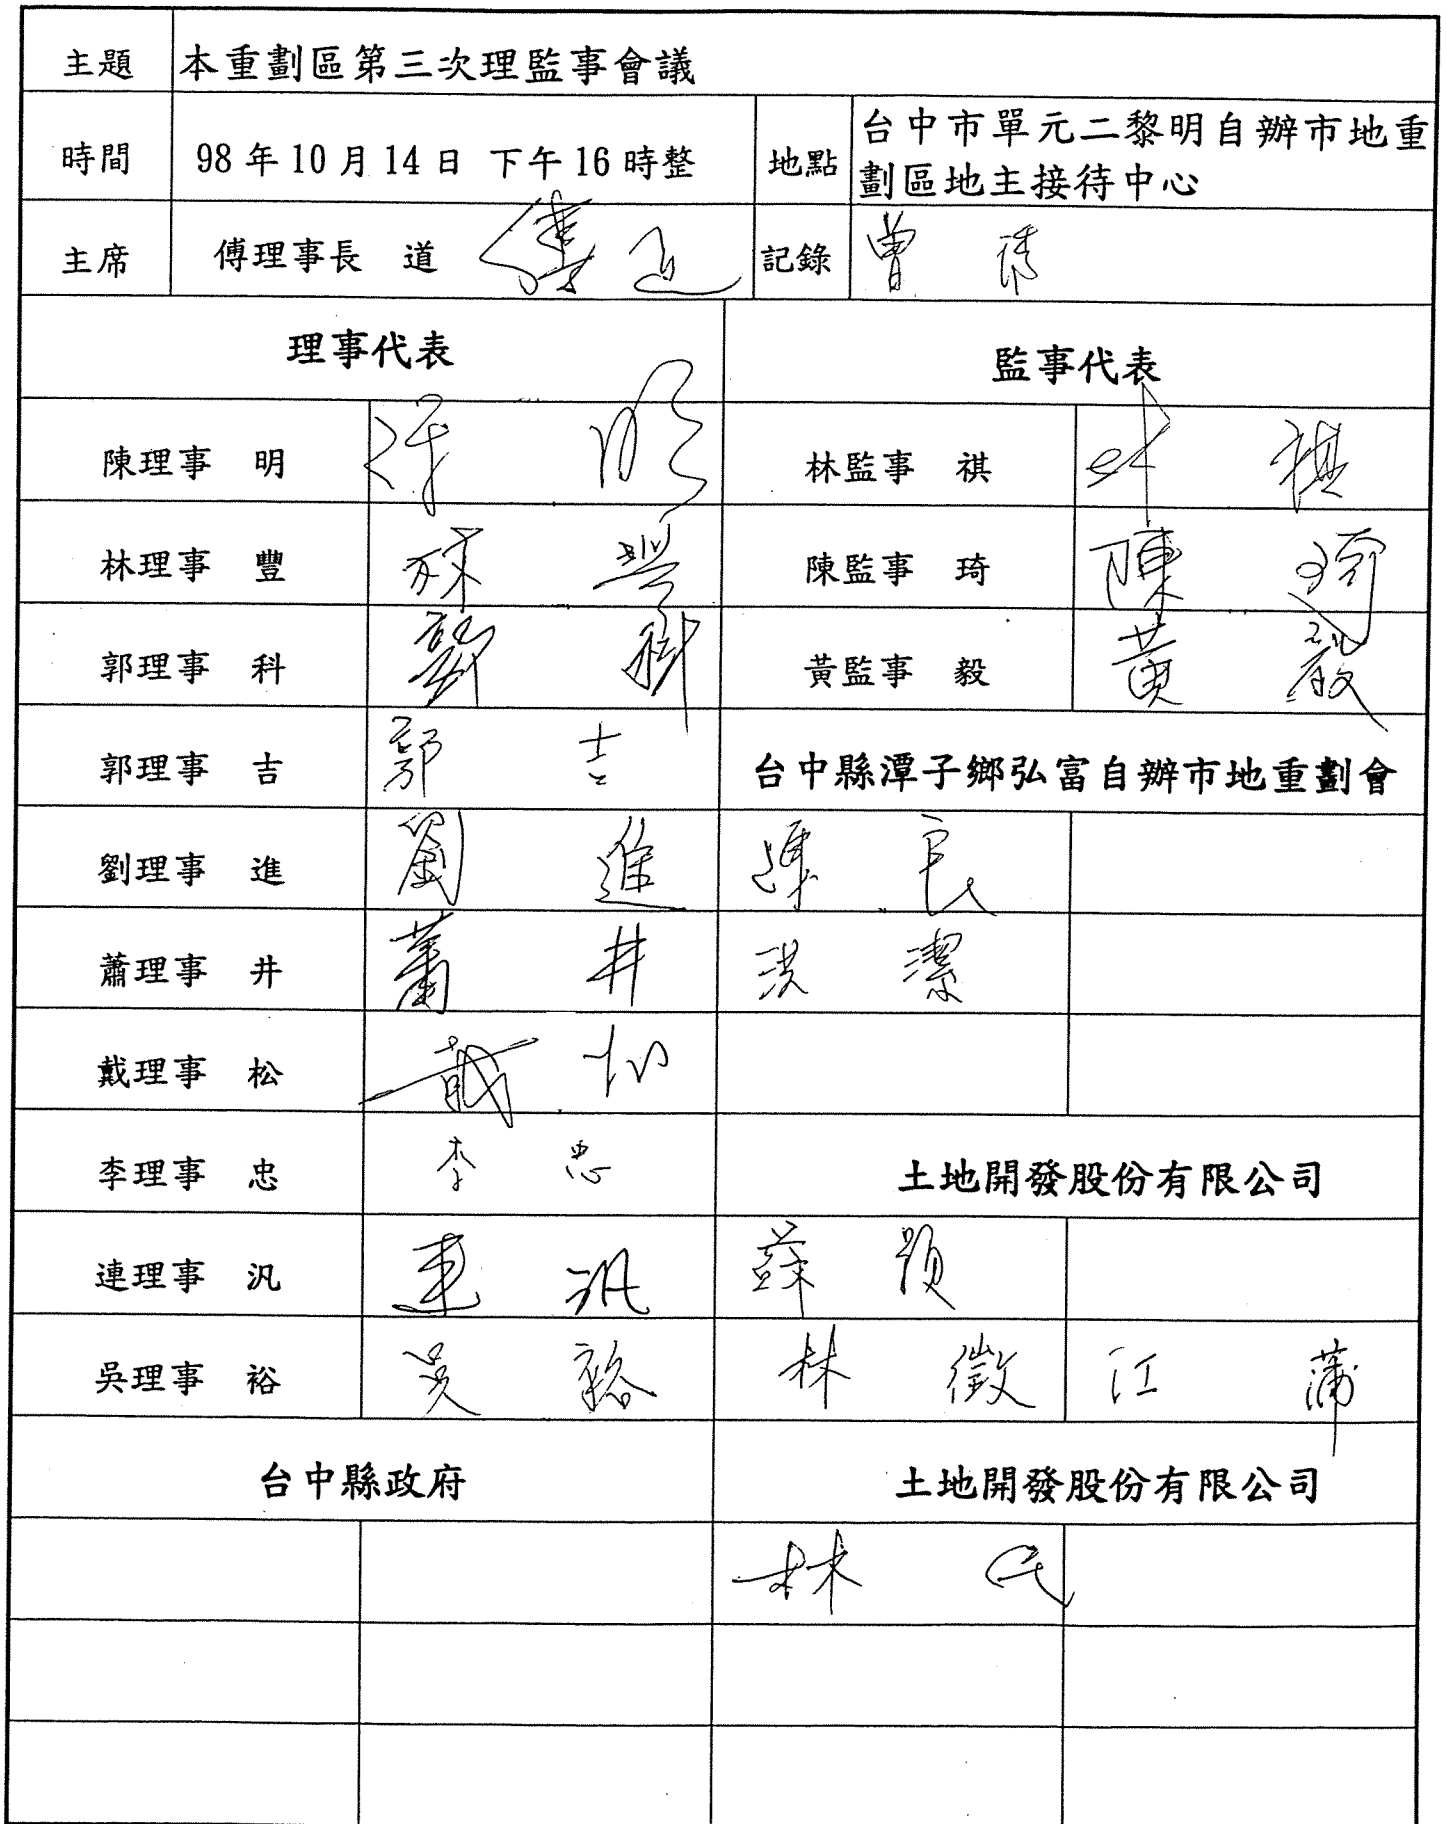 主題 本重劃區第三次理監事會議
時間 98 年 10 月 14 日 下午 16 時整 地點 台中市單元二黎明自辦市地重
劃區地主接待中心
主席 傅理事長 道 傅 道 記錄 曾
理事代表 監事代表
陳理事 明 陳 明 林監事 祺 林 祺
林理事 豐 林 豐 陳監事 琦 陳 琦
郭理事 科 郭 科 黃監事 毅 黃 毅
郭理事 吉 郭 吉 台中縣潭子鄉弘富自辦市地重劃會
劉理事 進 劉 進 陳 良
蕭理事 井 蕭 井 洪 潔
戴理事 松 戴 松
李理事 忠 李 忠 土地開發股份有限公司
連理事 汎 連 汎 蘇 穎
吳理事 裕 吳 裕 林 徵 江 蒲
台中縣政府 土地開發股份有限公司
林 民